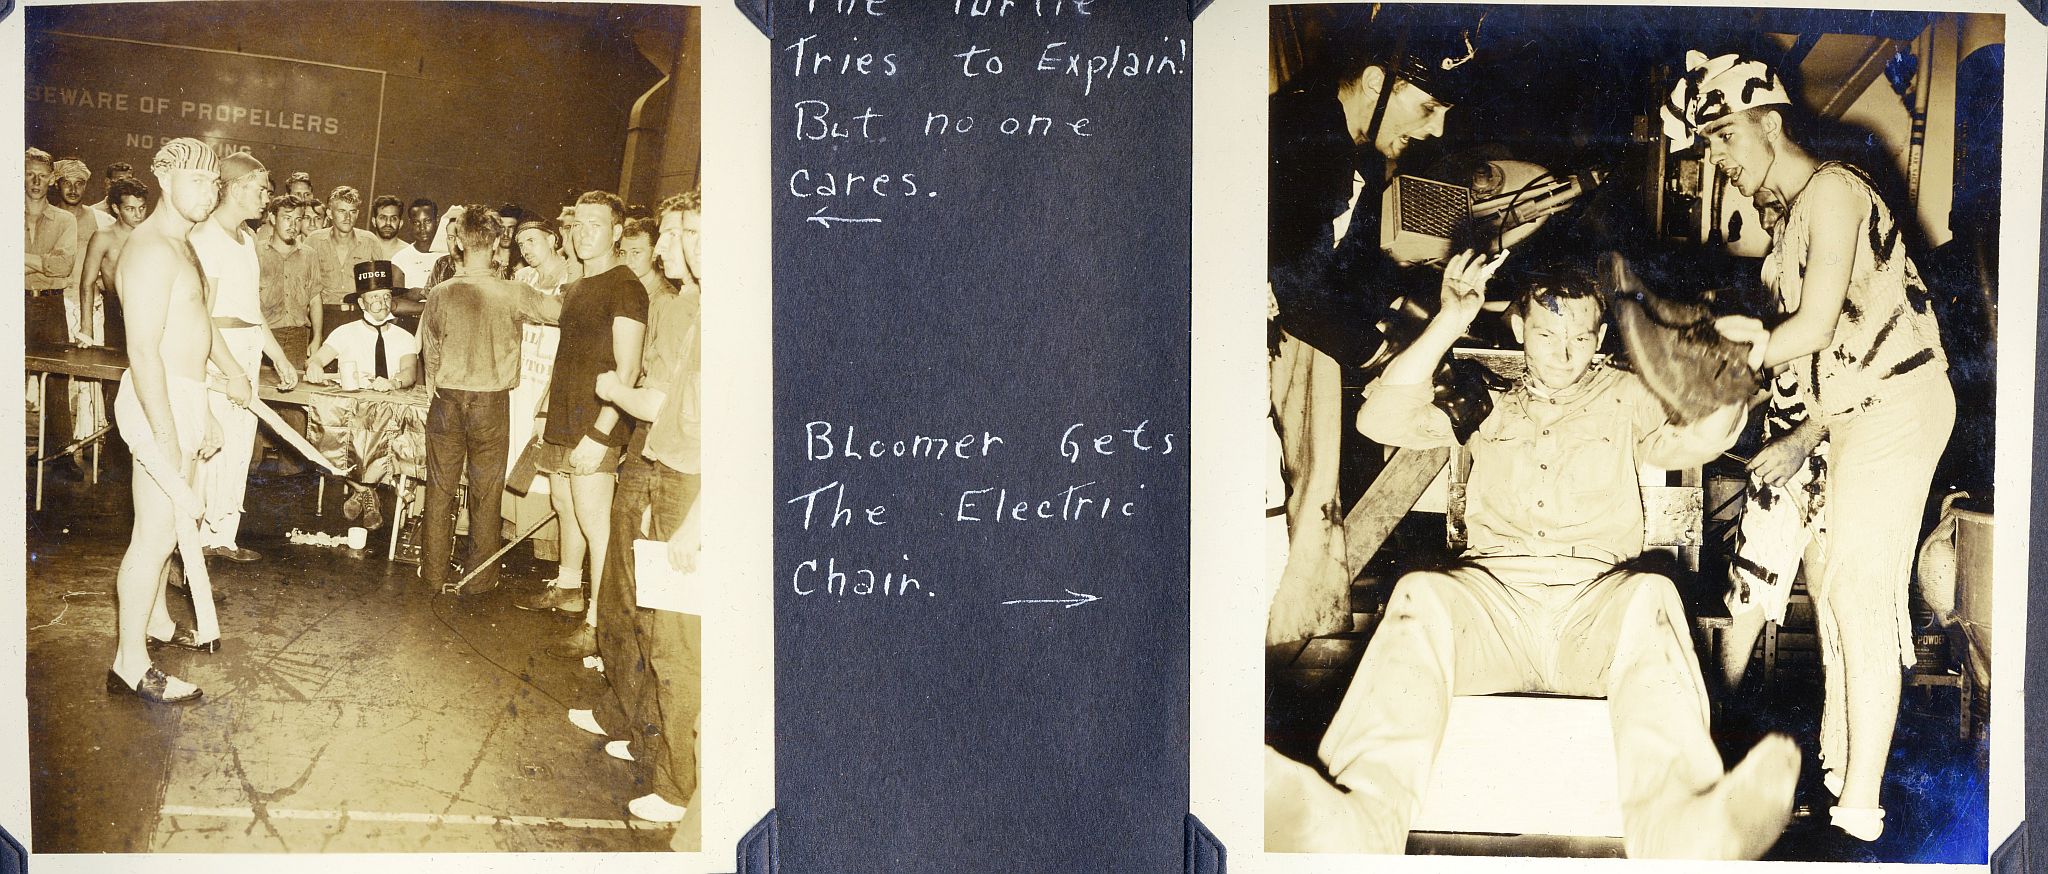 BEWARE OF PROPELLERS
NO SMOKING
JUDGE
The Turtle
Tries to Explain!
But no one
cares.
Bloomer Gets
The Electric
Chair.
POWDER